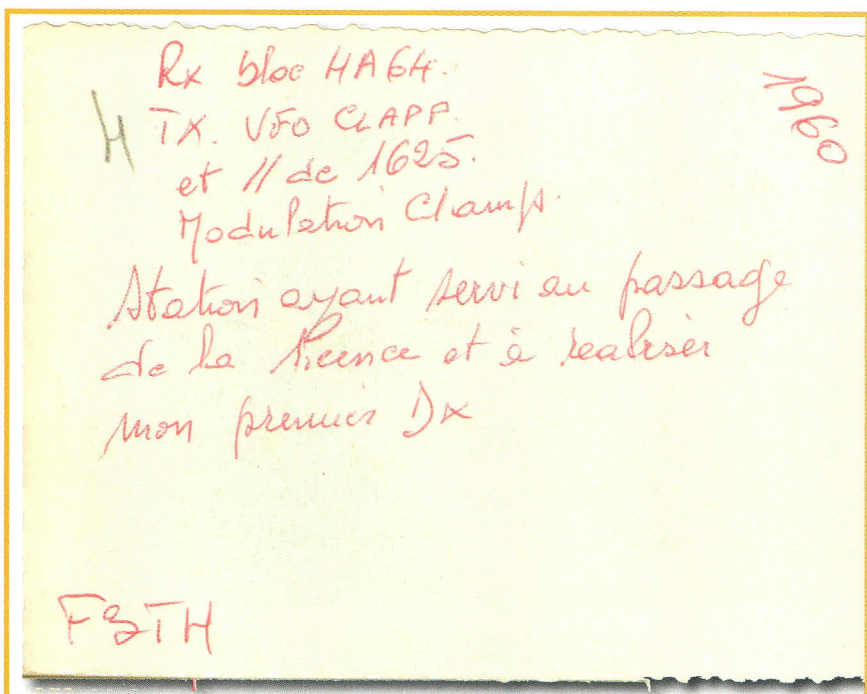 Rx bloc HA64.
1960
H
TX. VFO CLAPP.
et // de 1625.
Modulation Clamp.
Station ayant servi au passage
de la licence et à realiser
mon premier Dx